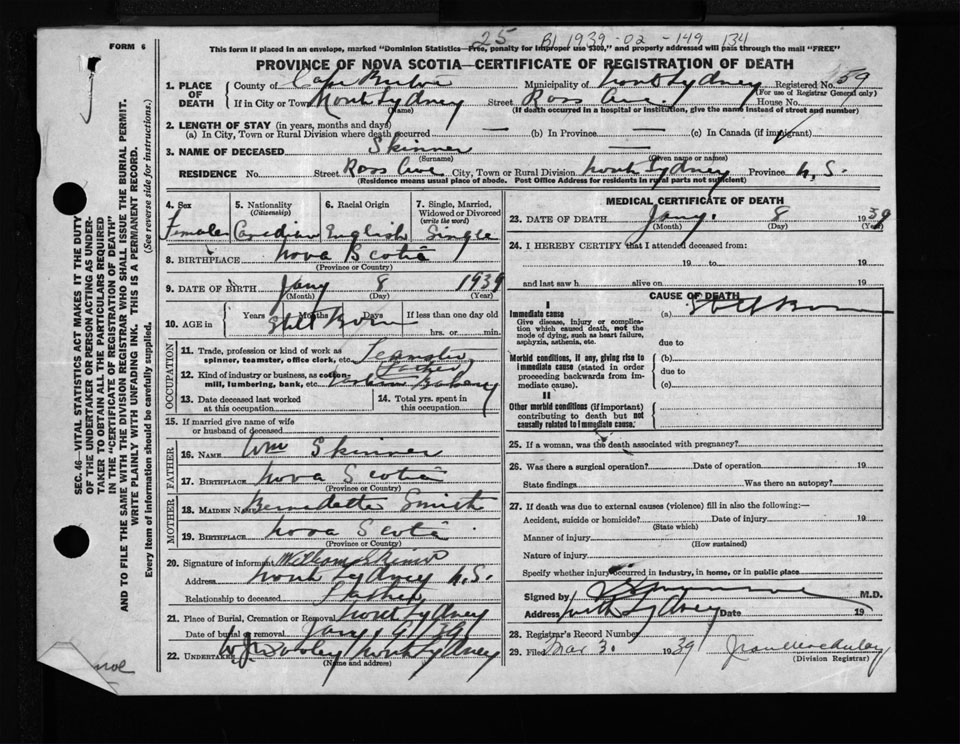 25 B1 1939-02-149 134
FORM 6
This form if placed in an envelope, marked "Dominion Statistics—Free, penalty for improper use $300," and properly addressed will pass through the mail "FREE"
PROVINCE OF NOVA SCOTIA—CERTIFICATE OF REGISTRATION OF DEATH
1. PLACE OF DEATH
County of Cape Breton Municipality of North Sydney Registered No. 159
(For use of Registrar General only)
If in City or Town North Sydney Street Ross Ave. House No.
(Name) (If death occurred in a hospital or institution, give name instead of street and number)
2. LENGTH OF STAY (in years, months and days)
(a) In City, Town or Rural Division where death occurred — (b) In Province — (c) In Canada (if immigrant)
3. NAME OF DECEASED Skinner —
(Surname) (Given name or names)
RESIDENCE No. Street Ross Ave City, Town or Rural Division North Sydney Province N.S.
(Residence means usual place of abode. Post Office Address for residents in rural parts not sufficient)
4. Sex 5. Nationality (Citizenship) 6. Racial Origin 7. Single, Married, Widowed or Divorced (write the word)
Female Canadian English Single
8. BIRTHPLACE Nova Scotia
(Province or Country)
9. DATE OF BIRTH Jany 8 1939
(Month) (Day) (Year)
10. AGE in Years Months Days If less than one day old
Still Born hrs. or min.
OCCUPATION
11. Trade, profession or kind of work as spinner, teamster, office clerk, etc. Teamster
Father
12. Kind of industry or business, as cotton-mill, lumbering, bank, etc. Bakery
13. Date deceased last worked at this occupation
14. Total yrs. spent in this occupation
15. If married give name of wife or husband of deceased
FATHER
16. NAME Wm Skinner
17. BIRTHPLACE Nova Scotia
(Province or Country)
MOTHER
18. MAIDEN NAME Bernadette Smith
19. BIRTHPLACE Nova Scotia
(Province or Country)
20. Signature of informant William Skinner
Address North Sydney N.S.
Relationship to deceased Father
21. Place of Burial, Cremation or Removal North Sydney
Date of burial or removal Jany 9/1939
22. UNDERTAKER W.J. Dooley North Sydney
(Name and address)
MEDICAL CERTIFICATE OF DEATH
23. DATE OF DEATH Jany. 8 1939
(Month) (Day) (Year)
24. I HEREBY CERTIFY that I attended deceased from:
19 to 19
and last saw h alive on 19
CAUSE OF DEATH
I
Immediate cause (a) Still Born
Give disease, injury or complication which caused death, not the mode of dying, such as heart failure, asphyxia, asthenia, etc.
due to
Morbid conditions, if any, giving rise to immediate cause (stated in order proceeding backwards from immediate cause).
(b)
due to
(c)
II
Other morbid conditions (if important) contributing to death but not causally related to immediate cause.
25. If a woman, was the death associated with pregnancy?
26. Was there a surgical operation? Date of operation 19
State findings Was there an autopsy?
27. If death was due to external causes (violence) fill in also the following:—
Accident, suicide or homicide? Date of injury 19
(State which)
Manner of injury
(How sustained)
Nature of injury
Specify whether injury occurred in industry, in home, or in public place
Signed by M.D.
Address North Sydney Date 19
28. Registrar's Record Number
29. Filed Mar 3. 1939
(Division Registrar)
SEC. 46—VITAL STATISTICS ACT MAKES IT THE DUTY
OF THE UNDERTAKER OR PERSON ACTING AS UNDER-
TAKER TO OBTAIN ALL THE PARTICULARS REQUIRED
IN THE "CERTIFICATE OF REGISTRATION OF DEATH"
AND TO FILE THE SAME WITH THE DIVISION REGISTRAR WHO SHALL ISSUE THE BURIAL PERMIT.
WRITE PLAINLY WITH UNFADING INK. THIS IS A PERMANENT RECORD.
Every item of information should be carefully supplied. (See reverse side for instructions.)